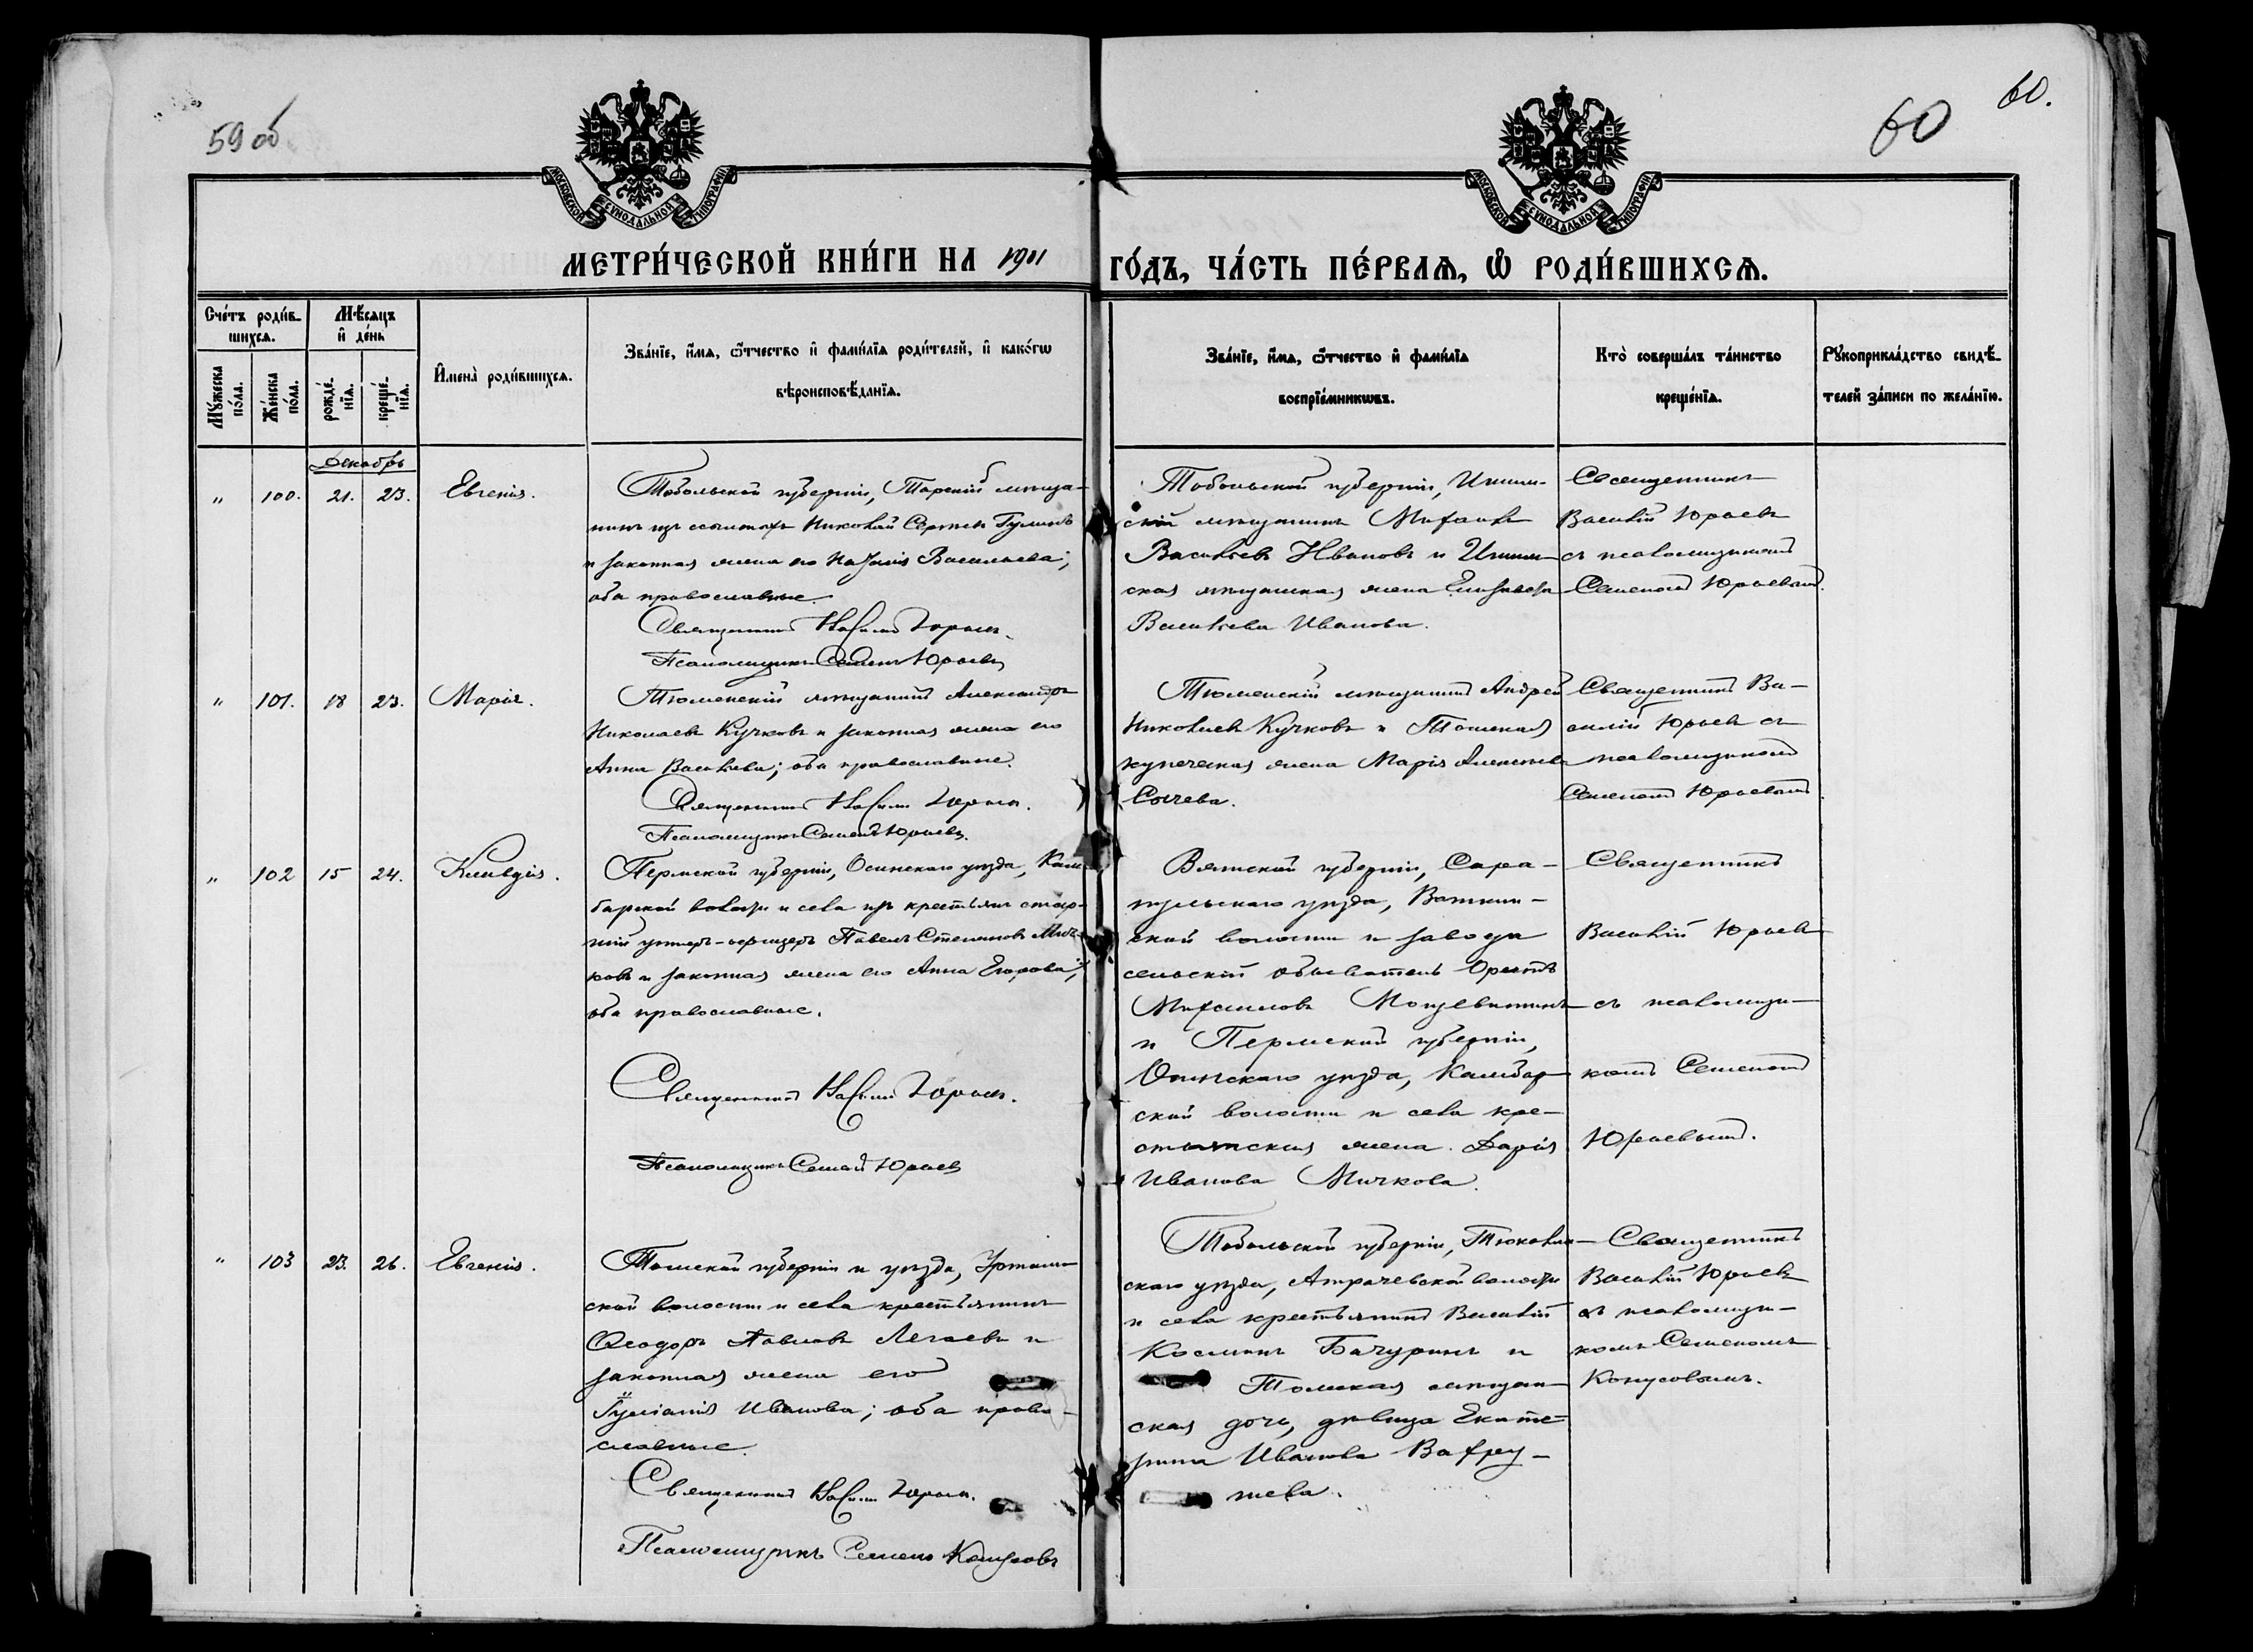 59 об
60
60.
МОСКОВСКОЙ СУНОДАЛЬНОЙ ТИПОГРАФІИ
МОСКОВСКОЙ СУНОДАЛЬНОЙ ТИПОГРАФІИ
МЕТРИ́ЧЕСКОЙ КНИ́ГИ НА 1901 ГО́ДЪ, ЧА́СТЬ ПЕ́РВАѦ, Ѽ РОДИ́ВШИХСѦ.
Сче́тъ роди́в-
шихсѧ.
Мѣ́сѧцъ
и҆ де́нь
Мꙋ́жеска
по́ла.
Же́нска
по́ла.
рожде́-
нїѧ.
креще́-
нїѧ.
И҆мена̀ роди́вшихсѧ.
Зва́нїе, и҆́мѧ, ѻ҆́тчество и҆ фами́лїѧ роди́телей, и҆ како́гѡ
вѣроисповѣ́данїѧ.
Зва́нїе, и҆́мѧ, ѻ҆́тчество и҆ фами́лїѧ
воспрїе́мникѡвъ.
Кто̀ соверша́лъ та́инство
креще́нїѧ.
Рꙋкоприкла́дство свидѣ́-
телей за́писи по жела́нїю.
Декабрь
" 100. 21. 23. Евгенія.
Тобольской губерніи, Тарскій мѣща-
нинъ изъ ссыльныхъ Николай Сергѣевъ
и законная жена его Наталія Васильева;
оба православные.
Священникъ Василій Юрьевъ.
Псаломщикъ Семенъ Юрьевъ
Тобольской губерніи, Ишим-
скій мѣщанинъ Михаилъ
Васильевъ Ивановъ и Ишим-
ская мѣщанская жена Елизавета
Васильева Иванова.
Священникъ
Василій Юрьевъ
съ псаломщикомъ
Семеномъ Юрьевымъ.
" 101. 18 23. Марія.
Тюменскій мѣщанинъ Александръ
Николаевъ Кучковъ и законная жена его
Анна Васильева; оба православные.
Священникъ Василій Юрьевъ.
Псаломщикъ Семенъ Юрьевъ.
Тюменскій мѣщанинъ Андрей
Николаевъ Кучковъ и Томская
купеческая жена Марія Алексѣева
Сычева.
Священникъ Ва-
силій Юрьевъ съ
псаломщикомъ
Семеномъ Юрьевымъ.
" 102 15 24. Клавдія.
Пермской губерніи, Осинскаго уѣзда, Кам-
барской волости и села изъ крестьянъ стар-
шій унтеръ-офицеръ Павелъ Степановъ Мич-
ковъ и законная жена его Анна Егорова;
оба православные.
Священникъ Василій Юрьевъ.
Псаломщикъ Семенъ Юрьевъ
Вятской губерніи, Сара-
пульскаго уѣзда, Воткин-
ской волости и завода
сельскій обыватель Орестъ
Михаиловъ
и Пермской губерніи,
Осинскаго уѣзда, Камбар-
ской волости и села кре-
стьянская жена Дарія
Иванова Мичкова.
Священникъ
Василій Юрьевъ
съ псаломщи-
комъ Семеномъ
Юрьевымъ.
" 103 23. 26. Евгенія.
Томской губерніи и уѣзда, Уртам-
ской волости и села крестьянинъ
Ѳеодоръ Павловъ Легаевъ и
законная жена его
Іуліанія Иванова; оба право-
славные.
Священникъ Василій Юрьевъ.
Псаломщикъ Семенъ Конусовъ
Тобольской губерніи, Тюкалин-
скаго уѣзда, Атрачевской волости
и села крестьянинъ Василій
Косминъ Бачуринъ и
Томская мѣщан-
ская дочь, дѣвица Екате-
рина Иванова Вахру-
шева.
Священникъ
Василій Юрьевъ
съ псаломщи-
комъ Семеномъ
Конусовымъ.